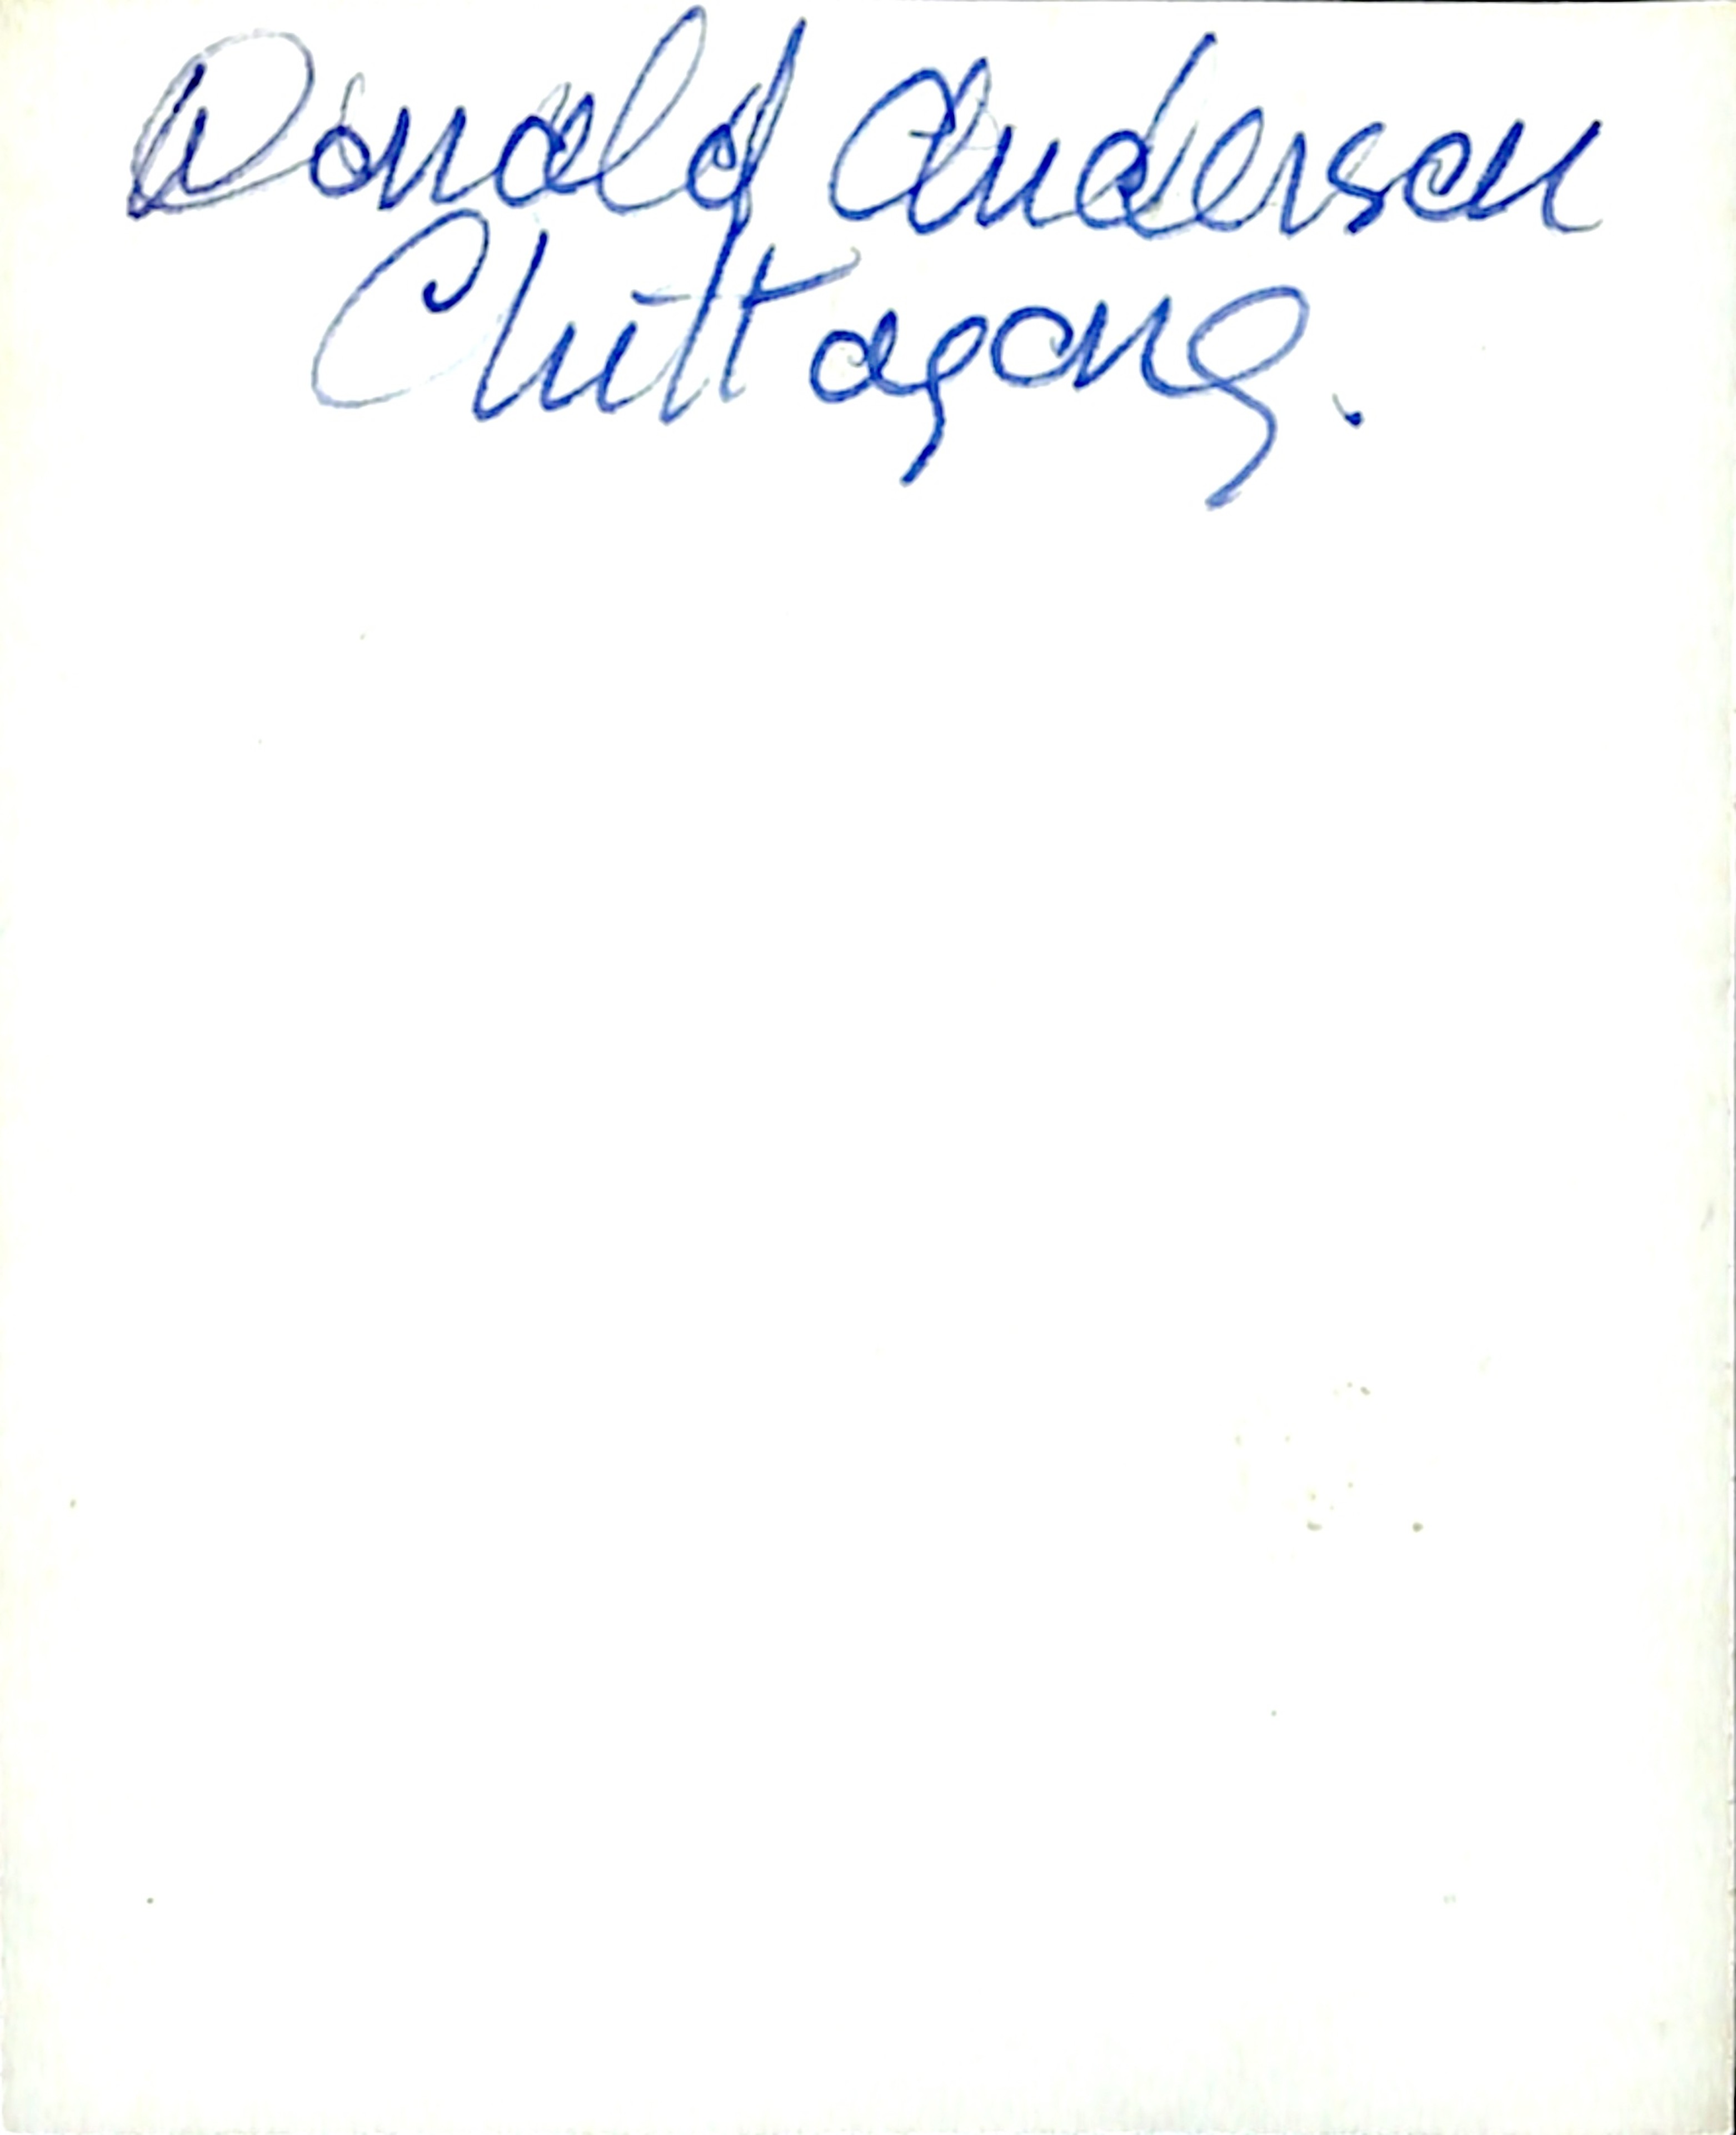 Donald Anderson
Chittagong.